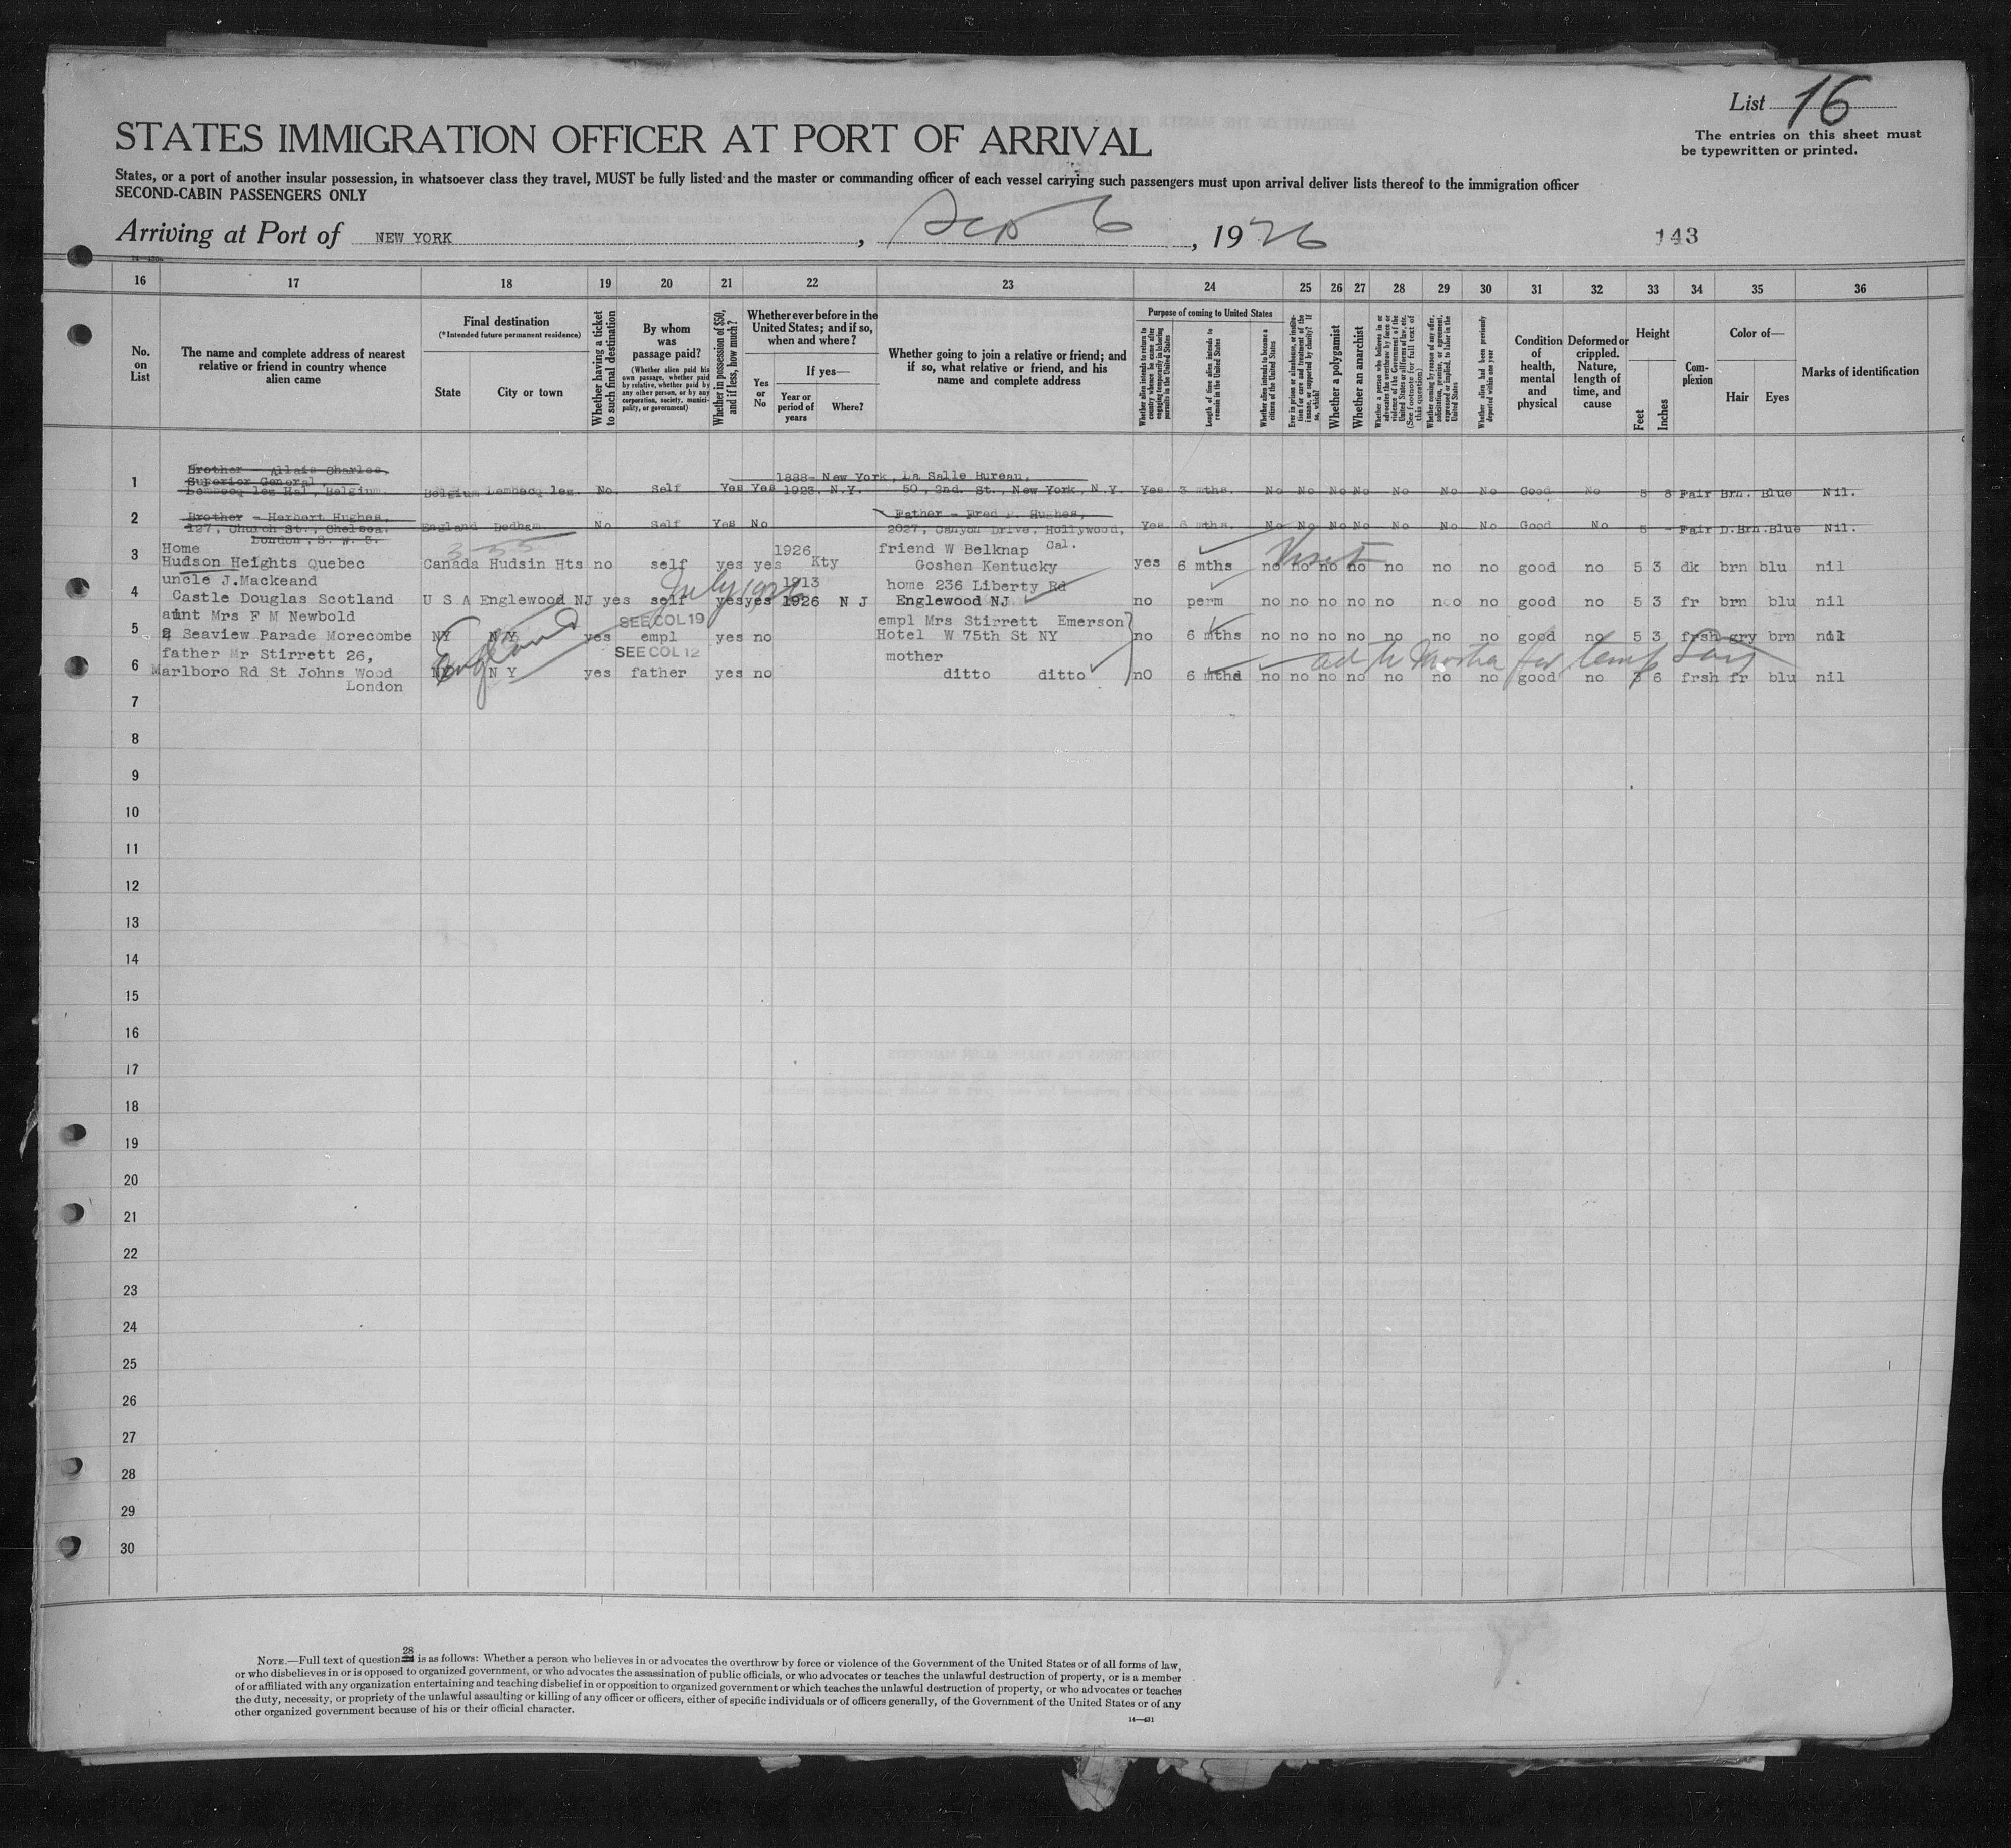 List 16
The entries on this sheet must
be typewritten or printed.
STATES IMMIGRATION OFFICER AT PORT OF ARRIVAL
States, or a port of another insular possession, in whatsoever class they travel, MUST be fully listed and the master or commanding officer of each vessel carrying such passengers must upon arrival deliver lists thereof to the immigration officer
SECOND-CABIN PASSENGERS ONLY
Arriving at Port of NEW YORK, Sep 6, 1926
143
16 17 18 19 20 21 22 23 24 25 26 27 28 29 30 31 32 33 34 35 36
No.
on
List
The name and complete address of nearest
relative or friend in country whence
alien came
Final destination
(*Intended future permanent residence)
State City or town
Whether having a ticket
to such final destination
By whom
was
passage paid?
(Whether alien paid his
own passage, whether paid
by relative, whether paid by
any other person, or by any
corporation, society, munici-
pality, or government)
Whether in possession of $50,
and if less, how much?
Whether ever before in the
United States; and if so,
when and where?
Yes
or
No
If yes—
Year or
period of
years
Where?
Whether going to join a relative or friend; and
if so, what relative or friend, and his
name and complete address
Purpose of coming to United States
Whether alien intends to return to
country whence he came after
engaging temporarily in laboring
pursuits in the United States
Length of time alien intends to
remain in the United States
Whether alien intends to become a
citizen of the United States
Ever in prison or almshouse, or institu-
tion for care and treatment of the
insane, or supported by charity? If
so, which?
Whether a polygamist
Whether an anarchist
Whether a person who believes in or
advocates the overthrow by force or
violence of the Government of the
United States or all forms of law, etc.
(See footnote for full text of
this question)
Whether coming by reason of any offer,
solicitation, promise, or agreement,
expressed or implied, to labor in the
United States
Whether alien had been previously
deported within one year
Condition
of
health,
mental
and
physical
Deformed or
crippled.
Nature,
length of
time, and
cause
Height
Feet Inches
Com-
plexion
Color of—
Hair Eyes
Marks of identification
Brother - Allais Charles.
Superior General,
1888- New York, La Salle Bureau,
1 Lembecq lez Hal, Belgium. Belgium Lembecq lez. No. Self Yes Yes 1923. N.Y. 50, 2nd. St., New York, N.Y. Yes. 3 mths. No No No No No No No Good No 5 8 Fair Brn. Blue Nil.
Brother - Herbert Hughes. Father - Fred F. Hughes,
2 127, Church St., Chelsea. England Dedham. No Self Yes No 2027, Canyon Drive, Hollywood, Yes 6 mths. No No No No No No No Good No 5 - Fair D.Brn.Blue Nil.
London, S. W. 3. Cal.
Home 1926 friend W Belknap
3 Hudson Heights Quebec Canada Hudsin Hts no self yes yes Kty Goshen Kentucky yes 6 mths no no no no no no no good no 5 3 dk brn blu nil
Visit
uncle J.Mackeand July 1926 1913 home 236 Liberty Rd
4 Castle Douglas Scotland U S A Englewood NJ yes self yes yes 1926 N J Englewood NJ no perm no no no no no no no good no 5 3 fr brn blu nil
aunt Mrs F M Newbold SEE COL 19 empl Mrs Stirrett Emerson
5 2 Seaview Parade Morecombe NY NY yes empl yes no Hotel W 75th St NY no 6 mths no no no no no no no good no 5 3 frsh gry brn nil
England
father Mr Stirrett 26, SEE COL 12 mother
6 Marlboro Rd St Johns Wood NY N Y yes father yes no ditto ditto nO 6 mthd no no no no no no no good no 3 6 frsh fr blu nil
London
7
8
9
10
11
12
13
14
15
16
17
18
19
20
21
22
23
24
25
26
27
28
29
30
28
NOTE.—Full text of question is as follows: Whether a person who believes in or advocates the overthrow by force or violence of the Government of the United States or of all forms of law,
or who disbelieves in or is opposed to organized government, or who advocates the assassination of public officials, or who advocates or teaches the unlawful destruction of property, or is a member
of or affiliated with any organization entertaining and teaching disbelief in or opposition to organized government or which teaches the unlawful destruction of property, or who advocates or teaches
the duty, necessity, or propriety of the unlawful assaulting or killing of any officer or officers, either of specific individuals or of officers generally, of the Government of the United States or of any
other organized government because of his or their official character.
14—431